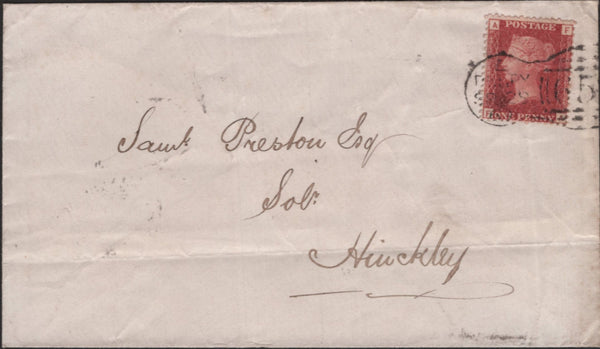 A POSTAGE F
ONE PENNY
Saml. Preston Esq
Solr.
Hinckley